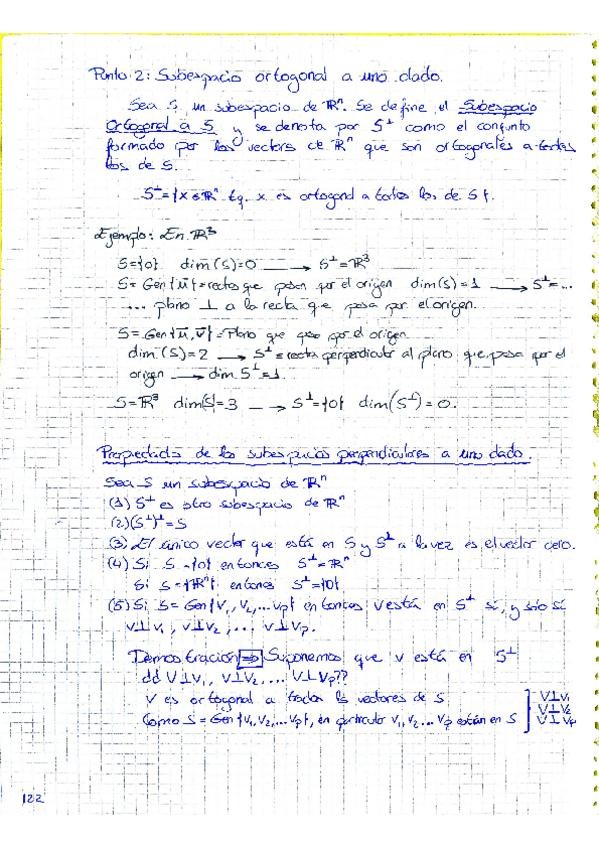 Punto 2: Subespacio ortogonal a uno dado.
Sea S un subespacio de ℝⁿ. Se define el Subespacio
Ortogonal a S y se denota por S^⊥ como el conjunto
formado por los vectores de ℝⁿ que son ortogonales a todos
los de S.
S^⊥ = {x ∈ ℝⁿ tq. x es ortogonal a todos los de S}.
Ejemplo: En ℝ³
S={0} dim(S)=0 → S^⊥=ℝ³
S= Gen{u̅}=rectas que pasan por el origen dim(s)=1 → S^⊥=...
... plano ⊥ a la recta que pasa por el origen.
S= Gen{u̅,v̅}=Plano que pasa por el origen
dim(S)=2 → S^⊥=recta perpendicular al plano que pasa por el
origen → dim S^⊥=1.
S=ℝ³ dim(S)=3 → S^⊥={0} dim(S^⊥)=0.
Propiedades de los subespacios perpendiculares a uno dado.
Sea S un subespacio de ℝⁿ
(1) S^⊥ es otro subespacio de ℝⁿ
(2) (S^⊥)^⊥=S
(3) El único vector que está en S y S^⊥ a la vez es el vector cero.
(4) Si S={0} entonces S^⊥=ℝⁿ
Si S={ℝⁿ} entonces S^⊥={0}
(5) Si S=Gen{v₁,v₂,...vp} entonces v está en S^⊥ si, y sólo si
v⊥v₁, v⊥v₂,... v⊥vp.
Demostración ⇒ Suponemos que v está en S^⊥
dd v⊥v₁, v⊥v₂,... v⊥vp??
v es ortogonal a todos los vectores de S
Como S=Gen{v₁,v₂,...vp}, en particular v₁,v₂,...vp están en S ] v⊥v₁
v⊥v₂
v⊥vp
122